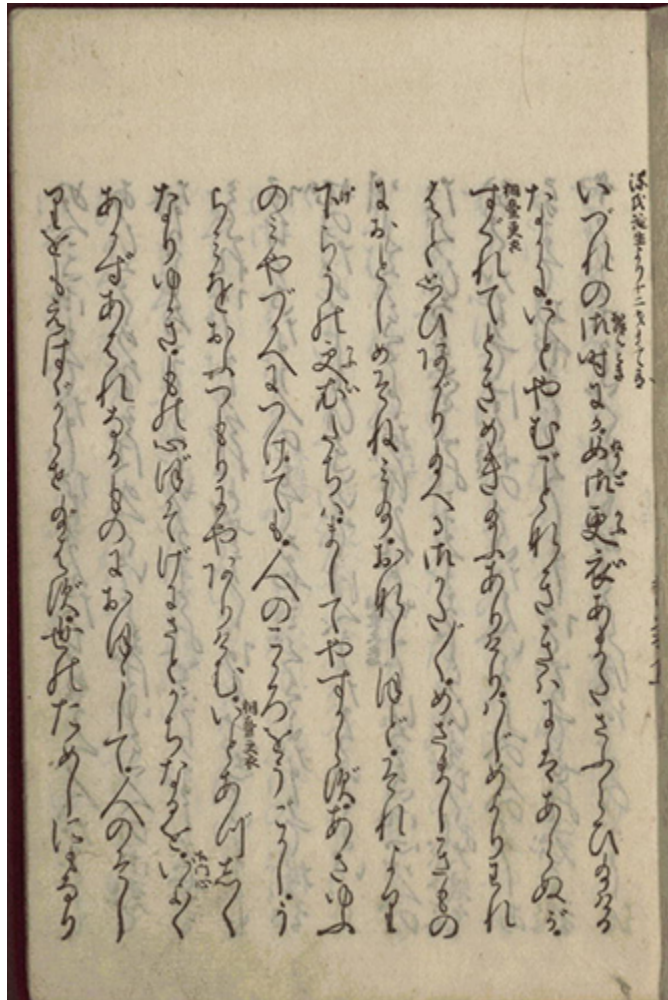 源氏誕生より十二才まで有
いづれの御時にか女御更衣あまたさふらひ給ける
なかに。いとやむごとなきゝはにはあらぬが。
桐壺更衣
すぐれてときめき給ふありけり。はじめよりわれ
はと思ひあがり給へる御かた〴〵。めざましきもの
におとしめそねみ給。おなしほど。それより
下らうの更衣たちは。ましてやすからず。あさゆふ
のみやづかへにつけても。人のこゝろをうごかし。う
らみをおふつもりにやありけむ。いとあづしく
桐壺更衣
なりゆき。もの心ぼそげにさとがちなるを。いよ〳〵
御門心
あかずあはれなるものにおぼゝして。人のそし
りをもえはゞからせ給はず。世のためしにもなり